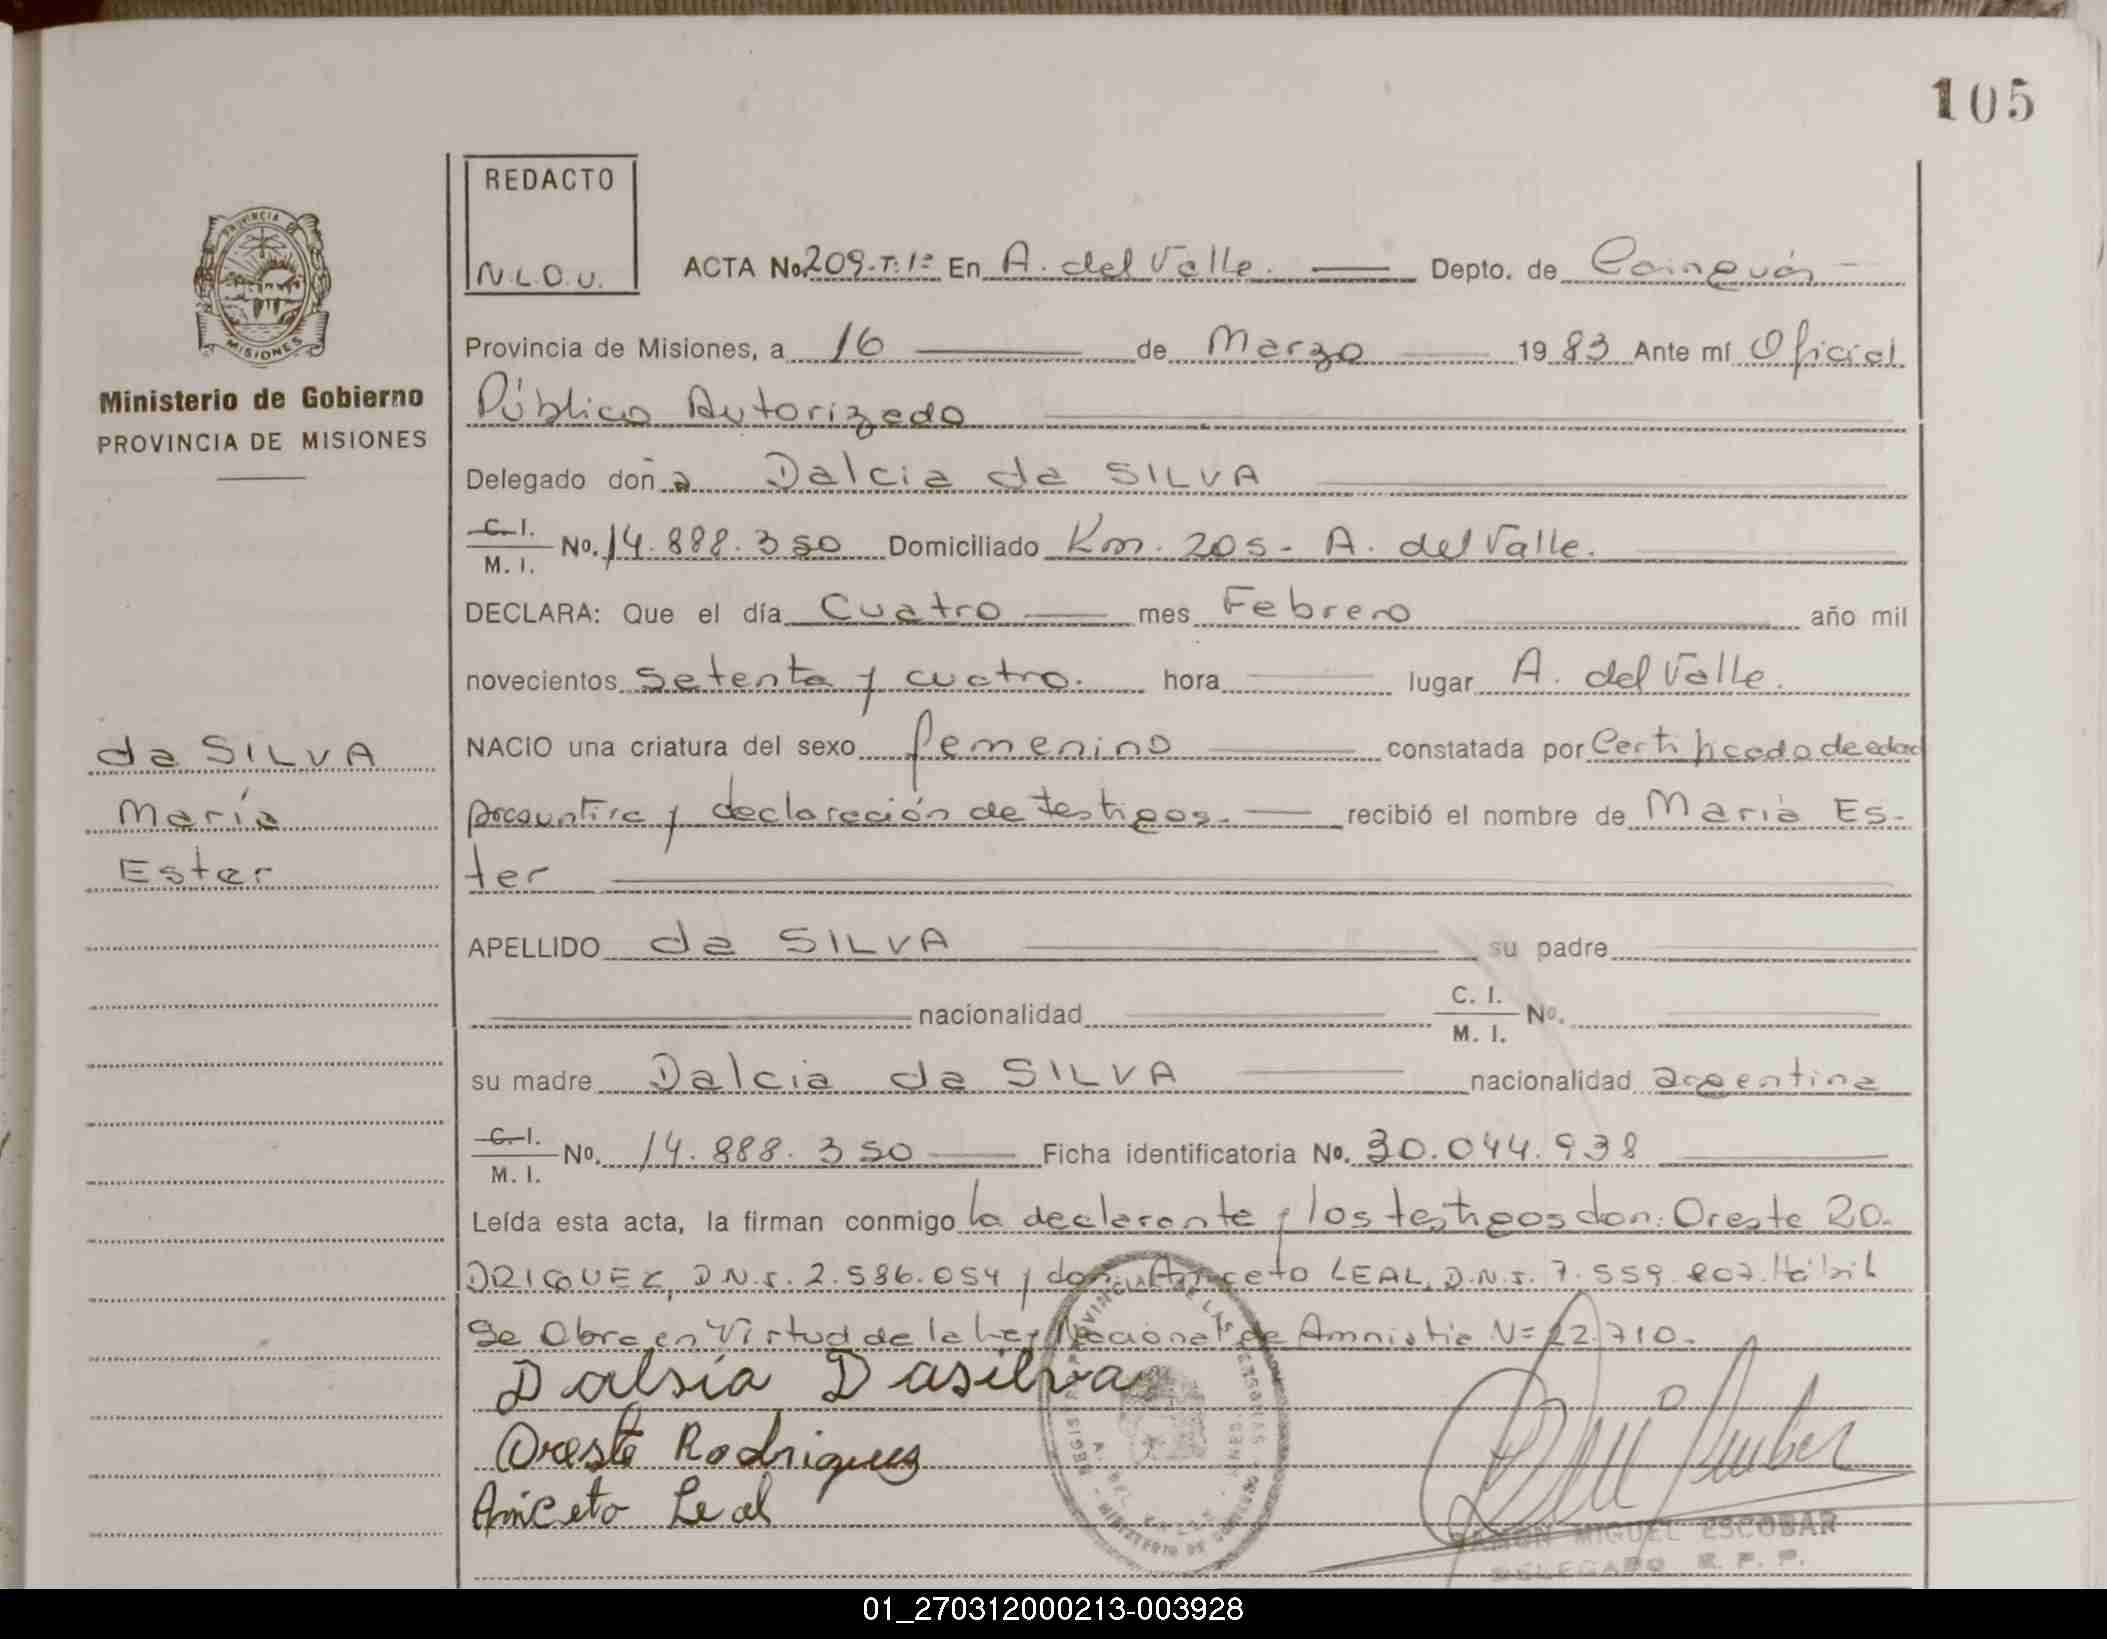 105
REDACTO
N.L.O.U.
ACTA No. 209-T:1º En A. del Valle. Depto. de Cainguás
PROVINCIA DE
MISIONES
Provincia de Misiones, a 16 de Marzo 1983 Ante mí Oficial
Ministerio de Gobierno
PROVINCIA DE MISIONES
Público Autorizado
Delegado doña Dalcia da SILVA
C. I.
M. I. No. 14.888.350 Domiciliado Km. 205- A. del Valle.
DECLARA: Que el día Cuatro mes Febrero año mil
novecientos setenta y cuatro. hora lugar A. del Valle.
da SILVA
María
Ester
NACIO una criatura del sexo femenino constatada por Certificado de edad
presuntiva y declaración de testigos. recibió el nombre de María Es-
ter
APELLIDO da SILVA su padre
nacionalidad C. I.
M. I. No.
su madre Dalcia da SILVA nacionalidad argentina
C. I.
M. I. No. 14.888.350 Ficha identificatoria No. 30.044.938
Leída esta acta, la firman conmigo la declarante y los testigos don: Oreste RO-
DRIGUEZ, D.N.I. 2.586.054 y don: Aniceto LEAL, D.N.I. 7.559.807. Hábil
Se Obra en Virtud de la Ley Nacional de Amnistia Nº 22.710.
Dalsia Dasilva
Oreste Rodriguez
Aniceto Leal
RAMON MIGUEL ESCOBAR
DELEGADO R. P. P.
01_270312000213-003928